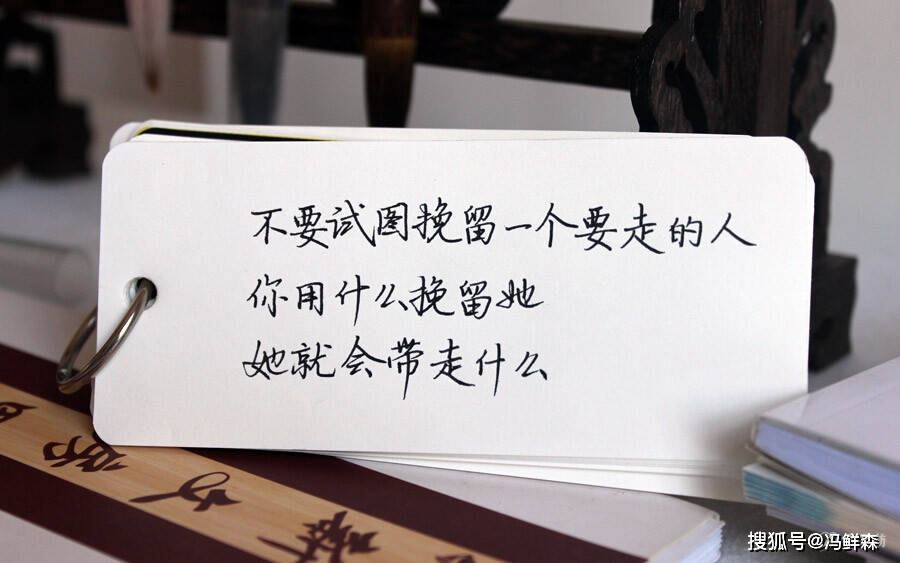 不要试图挽留一个要走的人
你用什么挽留她
她就会带走什么
搜狐号@冯鲜森